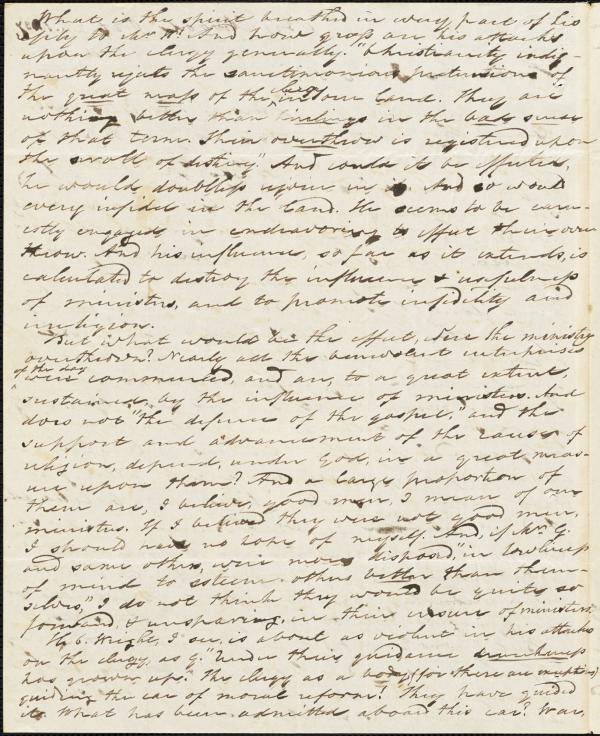 What is the spirit breathed in every part of his
reply to Mr. W? And how gross are his attacks
upon the clergy generally. "Christianity indig-
nantly rejects the sanctimonious pretensions of
the great mass of the clergy in our land. They are
nothing better than hirelings in the bad sense
of that term. Their overthrow is registered upon
the scroll of destiny." And could it be effected,
he would doubtless rejoice in it. And so would
every infidel in the land. He seems to be earn-
estly engaged in endeavoring to effect their over
throw. And his influence, so far as it extends, is
calculated to destroy the influence & usefulness
of ministers, and to promote infidelity and
irreligion.
But what would be the effect, were the ministry
overthrown? Nearly all the benevolent enterprises
of the day
were commenced, and are, to a great extent,
sustained by the influence of ministers. And
does not "the defence of the gospel," and the
support and advancement of the cause of
religion, depend, under God, in a great meas-
ure upon them? And a large proportion of
them are, I believe, good men, I mean of our
ministers. If I believed they were not good men,
I should have no hope of myself. And, if Mr. G.
and some others, were more disposed, "in lowliness
of mind to esteem others better than them-
selves," I do not think they would be quite so
forward, & unsparing, in their censure of ministers.
H. C. Wright, I see, is about as violent in his attacks
on the clergy, as G. "Under their guidance drunkenness
has grown up." The clergy as a body, (for there are exceptions)
guiding the car of moral reform! They have guided
it. What has been admitted aboard this car? War,